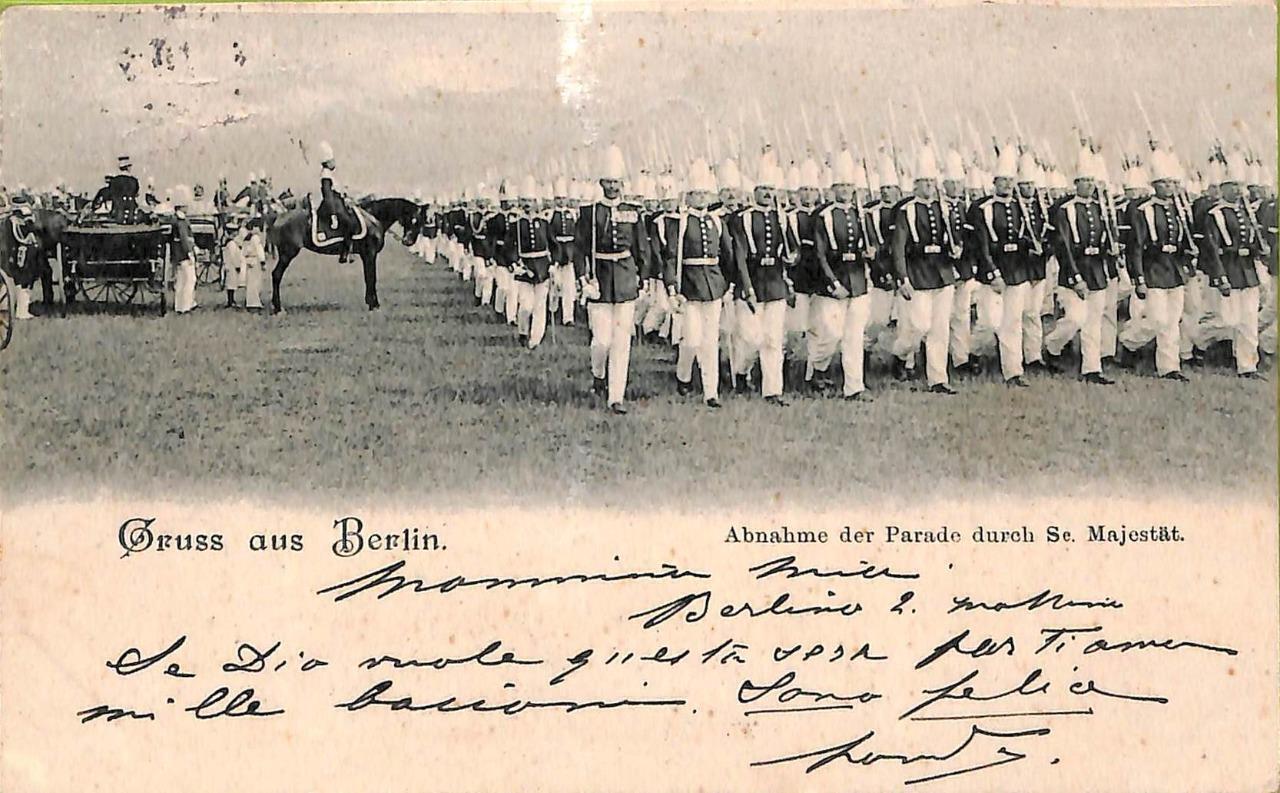 Gruss aus Berlin.
Abnahme der Parade durch Se. Majestät.
Mammina mia
Berlino 2. mattina
Se Dio vuole questa sera partiamo
mille bacioni. Sono felice